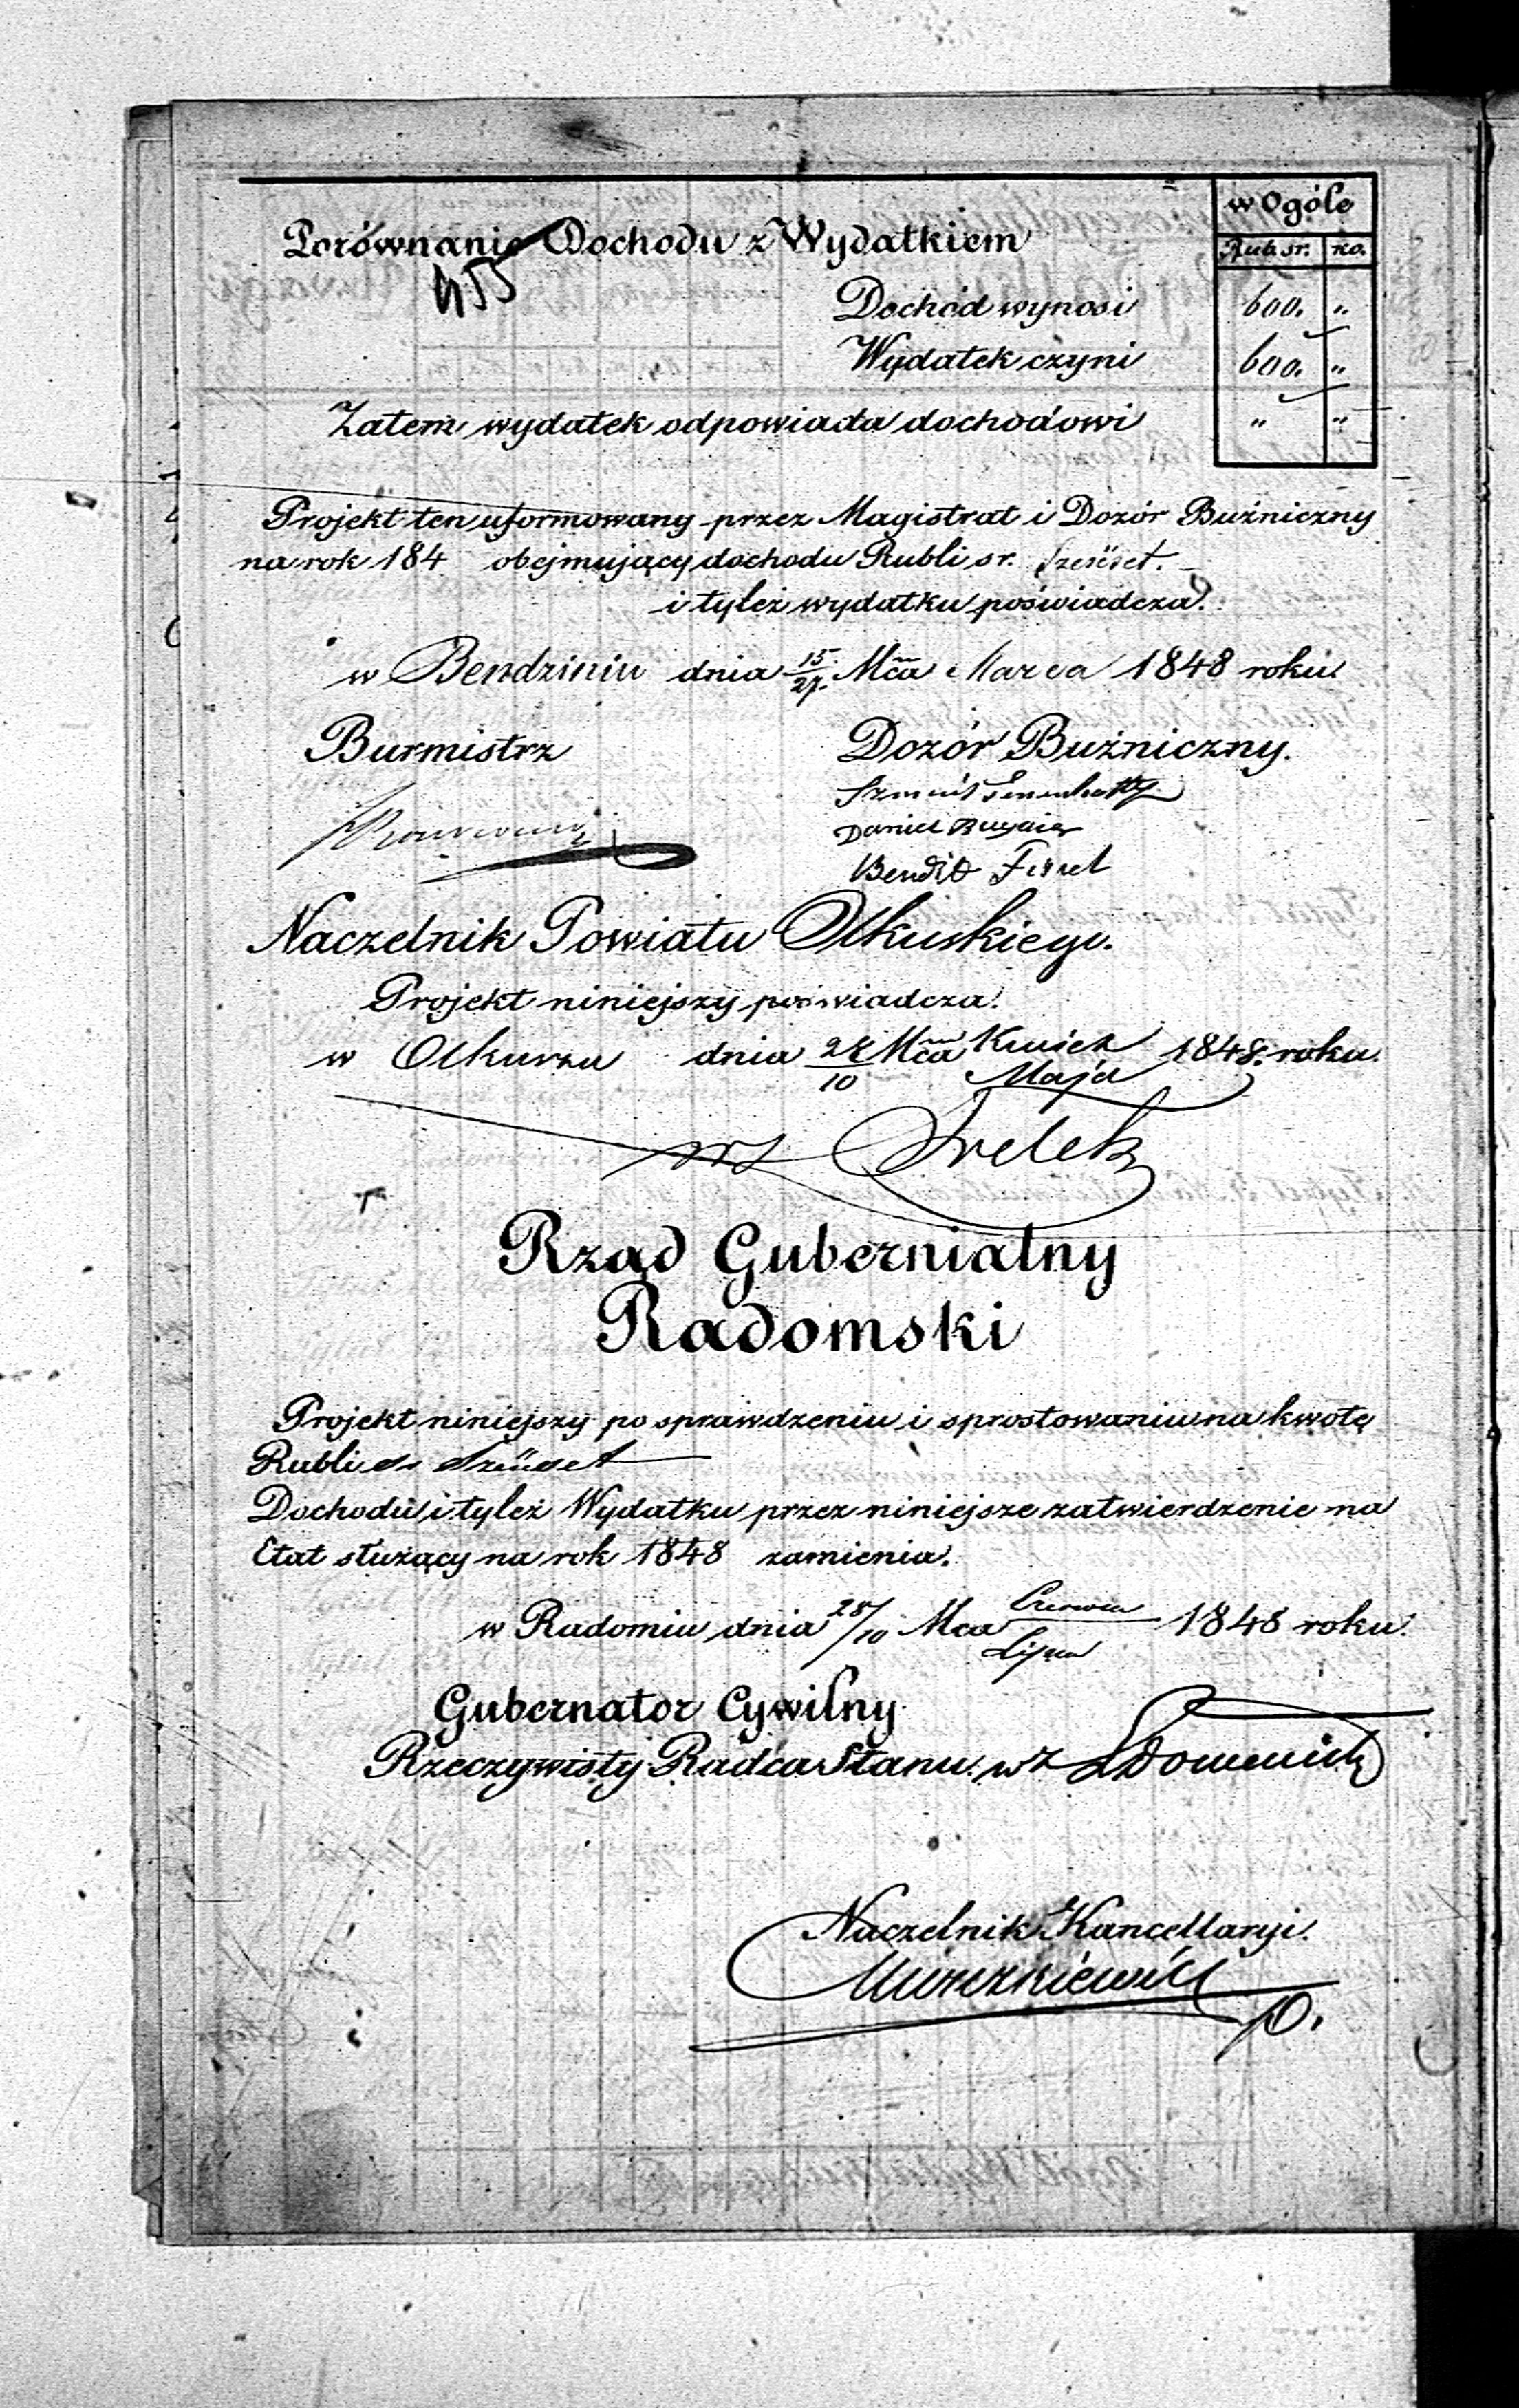 w Ogóle
Porównanie Dochodu z Wydatkiem
Rub. sr. ko.
455
Dochód wynosi 600. "
Wydatek czyni 600. "
Zatem wydatek odpowiada dochodowi " "
Projekt ten uformowany przez Magistrat i Dozór Buźniczny
na rok 184 obejmujący dochodu Rubli sr. Sześset.
i tyleż wydatku poświadcza.
w Bendziniu dnia 15/27. Mca Marca 1848 roku.
Burmistrz Dozór Buźniczny.
Daniel
Bendit
Naczelnik Powiatu Olkuskiego.
Projekt niniejszy poświadcza.
w Olkuszu dnia 28/10 Mca Kwiet/Maja 1848. roku.
wz Trelek
Rząd Gubernialny
Radomski
Projekt niniejszy po sprawdzeniu i sprostowaniu na kwotę
Rubli sr Sześset
Dochodu i tyleż Wydatku przez niniejsze zatwierdzenie na
Etat służący na rok 1848 zamienia.
w Radomiu dnia 28/10 Mca Czerwca/Lipca 1848 roku.
Gubernator Cywilny
Rzeczywisty Radca Stanu. wz
Naczelnik Kancellaryi.